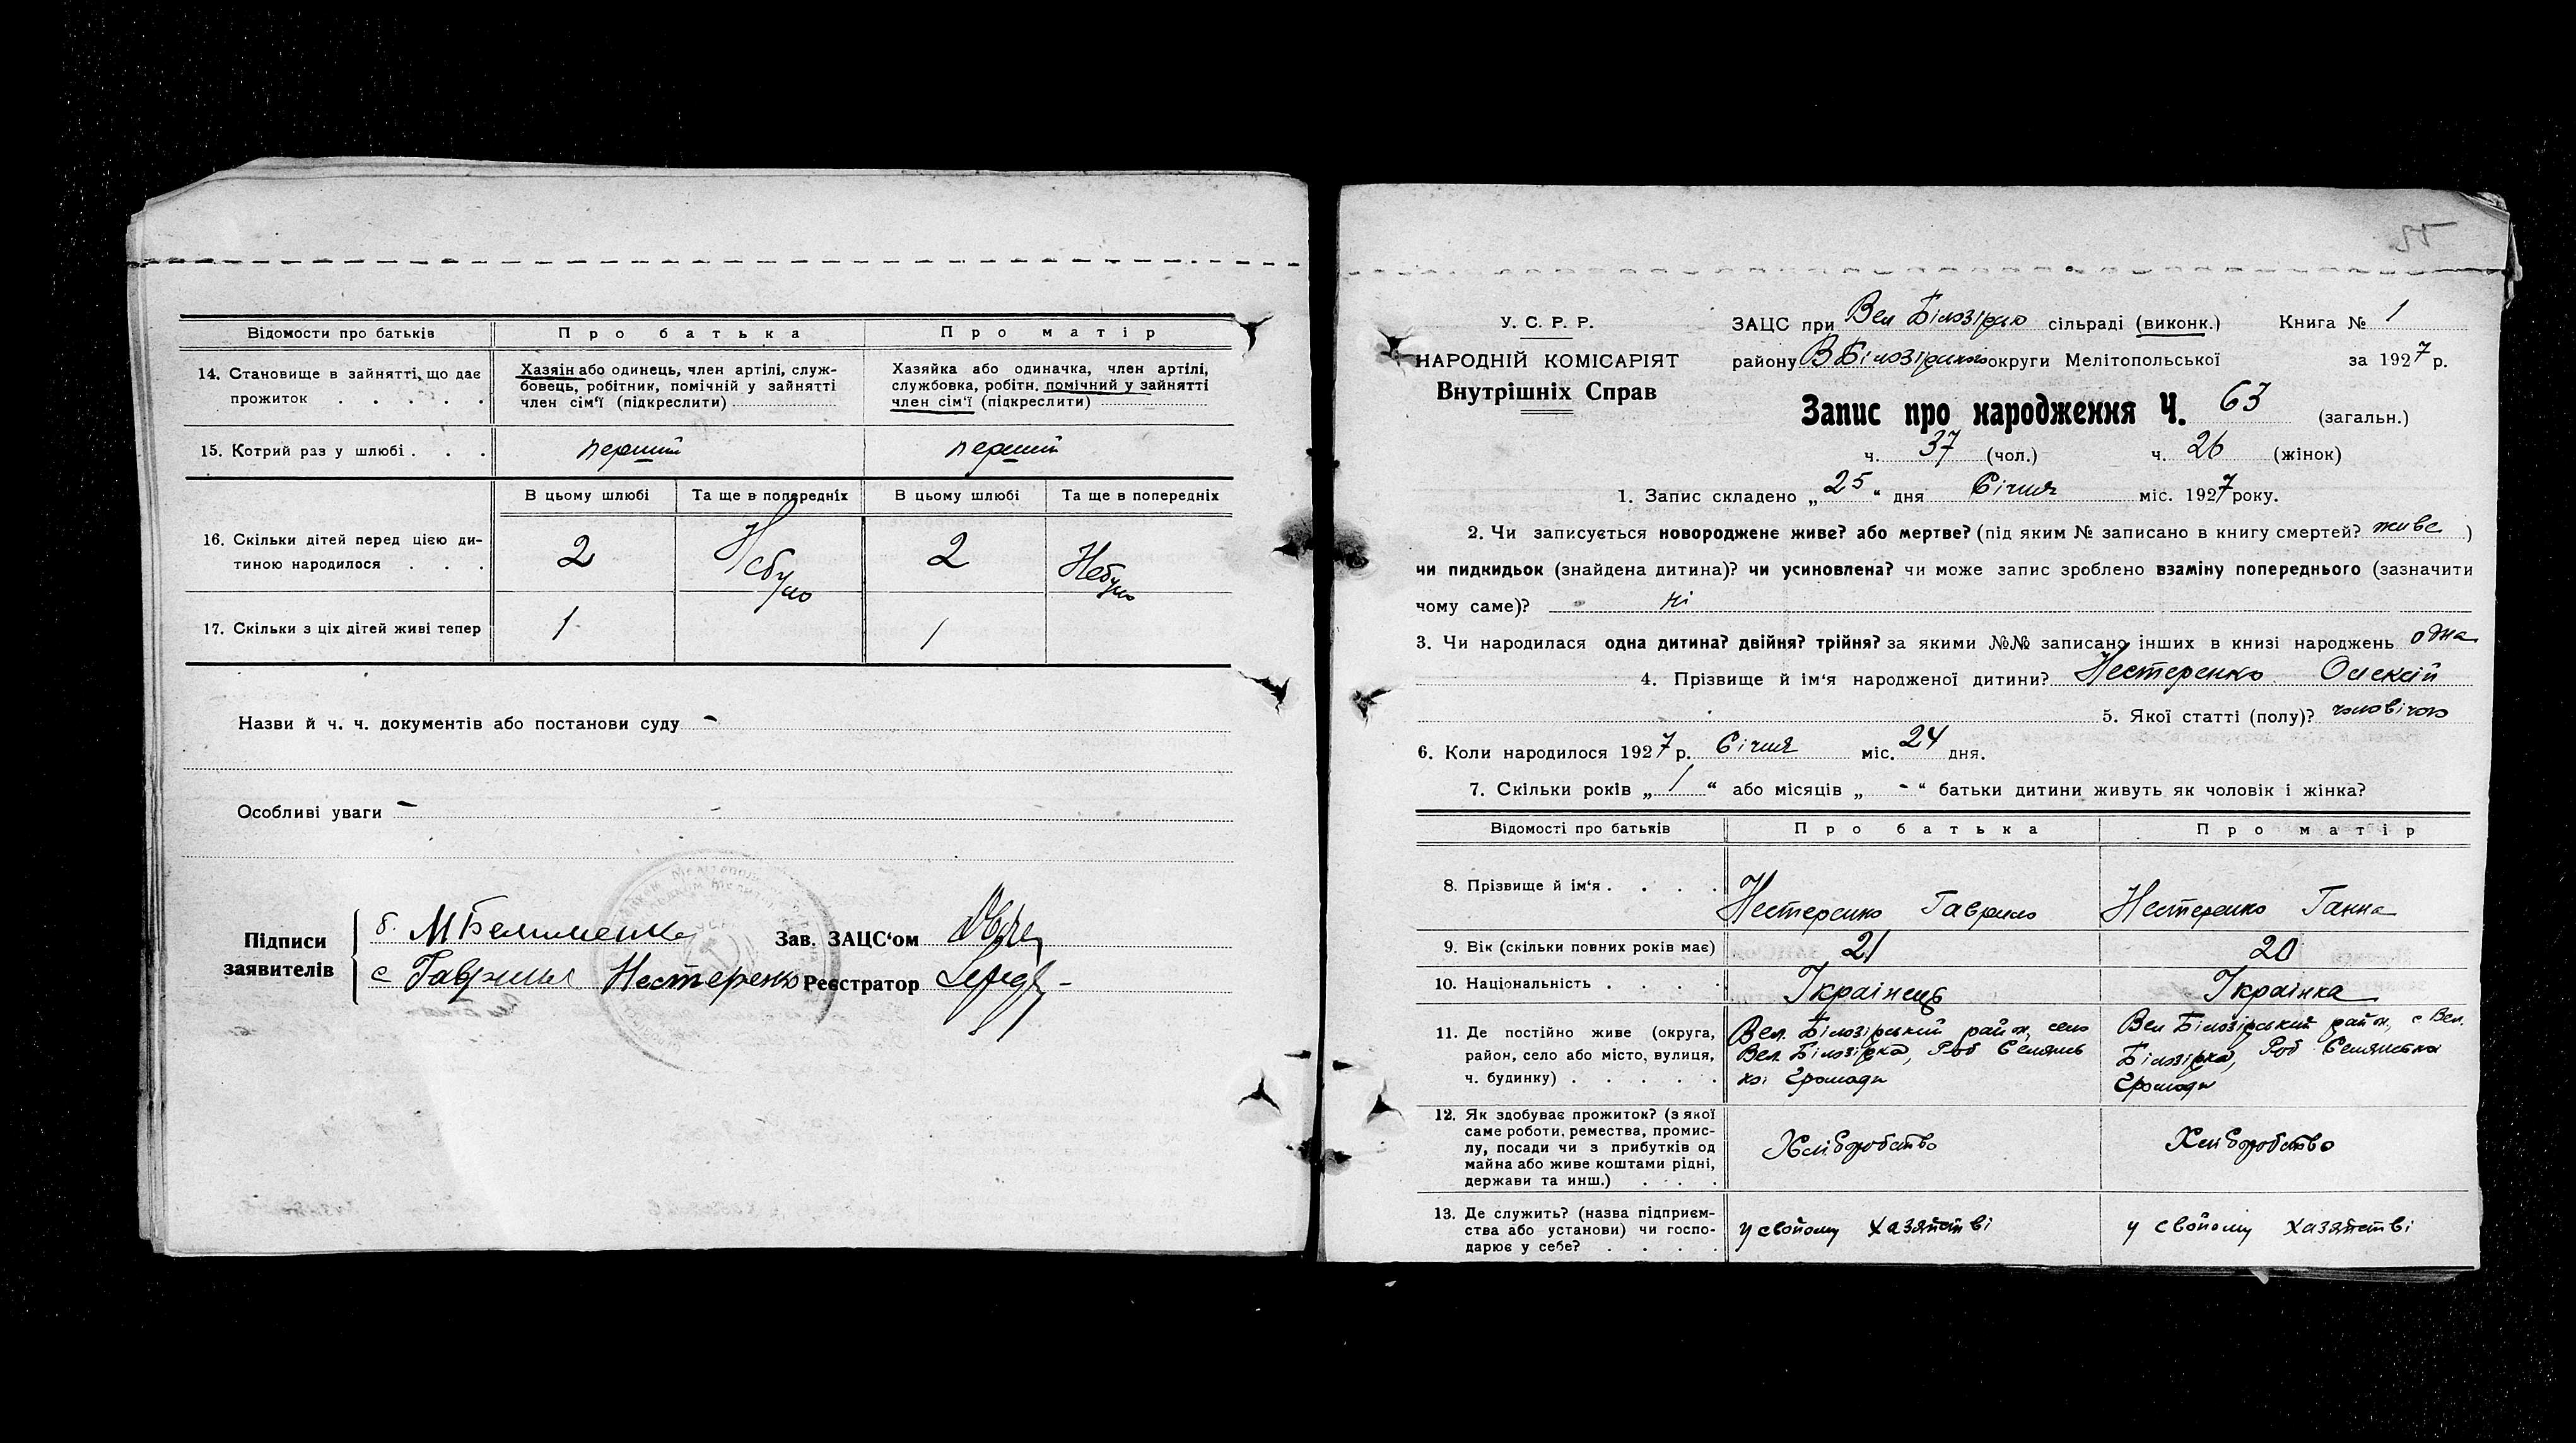 Відомости про батьків Про батька Про матір
14. Становище в зайнятті, що дає прожиток . . . . .
Хазяін або одинець, член артілі, служ-
бовець, робітник, помічній у зайнятті
член сім'ї (підкреслити)
Хазяйка або одиначка, член артілі,
службовка, робітн. помічний у зайнятті
член сім'ї (підкреслити)
15. Котрий раз у шлюбі . . . перший перший
В цьому шлюбі Та ще в попередніх В цьому шлюбі Та ще в попередніх
16. Скільки дітей перед цією ди-
тиною народилося . . . 2 Небуло 2 Небуло
17. Скільки з ціх дітей живі тепер 1 1
Назви й ч. ч. документів або постанови суду -
Особливі уваги -
Підписи
заявителів
Зав. ЗАЦС'ом
с Гаврила Нестеренко Реєстратор
У. С. Р. Р.
НАРОДНІЙ КОМІСАРІЯТ
Внутрішніх Справ
ЗАЦС при Вел Білозірською сільраді (виконк.) Книга № 1
району В Білозірського округи Мелітопольської за 1927 р.
Запис про народження Ч. 63 (загальн.)
ч. 37 (чол.) ч. 26 (жінок)
1. Запис складено „25“ дня Січня міс. 1927 року.
2. Чи записується новороджене живе? або мертве? (під яким № записано в книгу смертей? живе )
чи пидкидьок (знайдена дитина)? чи усиновлена? чи може запис зроблено взаміну попереднього (зазначити
чому саме)? ні
3. Чи народилася одна дитина? двійня? трійня? за якими №№ записано інших в книзі народжень одна
4. Прізвище й ім'я народженої дитини? Нестеренко Олексій
5. Якої статті (полу)? чоловічою
6. Коли народилося 1927 р. Січня міс. 24 дня.
7. Скільки років „ 1 “ або місяців „ - “ батьки дитини живуть як чоловік і жінка?
Відомості про батьків Про батька Про матір
8. Прізвище й ім'я . . . . Нестеренко Гаврило Нестеренко Ганна
9. Вік (скільки повних років має) 21 20
10. Національність . . . . Українець Українка
11. Де постійно живе (округа,
район, село або місто, вулиця,
ч. будинку) . . . . .
Вел. Білозірський район, село
Вел. Білозірка, Роб Селянсь
кої Громади
Вел Білозірський район, с Вел.
Білозірка, Роб Селянська
Громади
12. Як здобуває прожиток? (з якої
саме роботи, ремества, промис-
лу, посади чи з прибутків од
майна або живе коштами рідні,
держави та инш.) . . .
Хліборобство Хліборобство
13. Де служить? (назва підприєм-
ства або установи) чи госпо-
дарює у себе? . . . .
у свойому хазяйстві у свойому хазяйстві